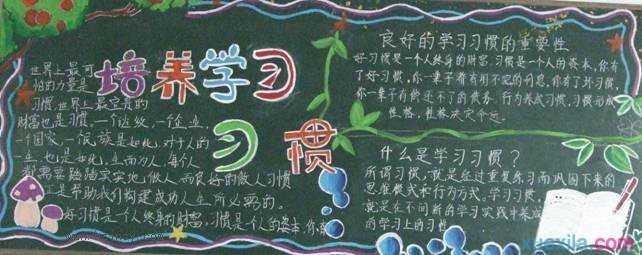 培养学习
习惯
世界上最可
怕的力量是
习惯,世界上最宝贵的
财富也是习惯。一个班级,一个企业,
一个国家,一个民族是如此,对于人的
一生,也是如此,生而为人,每个人
都需要踏踏实实地,做人,而良好的做人习惯
正是帮助我们构建成功人生所必需的。
好习惯是个人终身的财富,习惯是个人的资本,你
良好的学习习惯的重要性
好习惯是一个人终身的财富,习惯是个人的资本,你有
了好习惯,你一辈子都有用不完的利息,你有了坏习惯,
你一辈子有偿还不了的债务,行为养成习惯,习惯形成
性格,性格决定命运
什么是学习习惯?
所谓习惯,就是经过重复练习而巩固下来的
思维模式和行为方式。学习习惯,
就是在不间断的学习实践中养成
的学习上的习性
xuexila.com